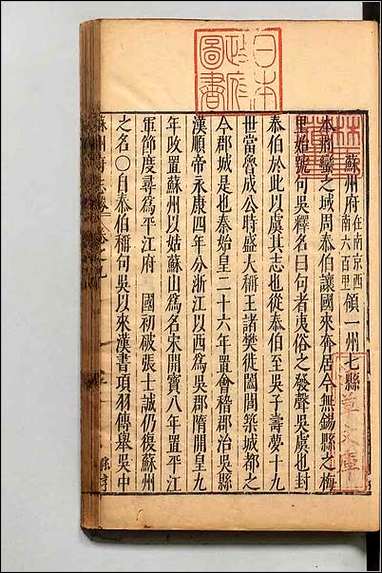 日本
政府
圖書
蘇州府 在南京西南六百里 領一州七縣
本荊蠻之域周泰伯讓國來奔居今無錫縣之梅
里始號句吳釋名曰句者夷俗之發聲吳虞也封
泰伯於此以虞其志也從泰伯至吳子壽夢十九
世當魯成公時盛大稱王諸樊徙闔閭築城都之
今郡城是也秦始皇二十六年置會稽郡治吳縣
漢順帝永康四年分浙江以西為吳郡隋開皇九
年改置蘇州以姑蘇山為名宋開寶八年置平江
軍節度尋為平江府 國初破張士誠仍復蘇州
之名〇自泰伯稱句吳以來漢書項羽傳舉吳中